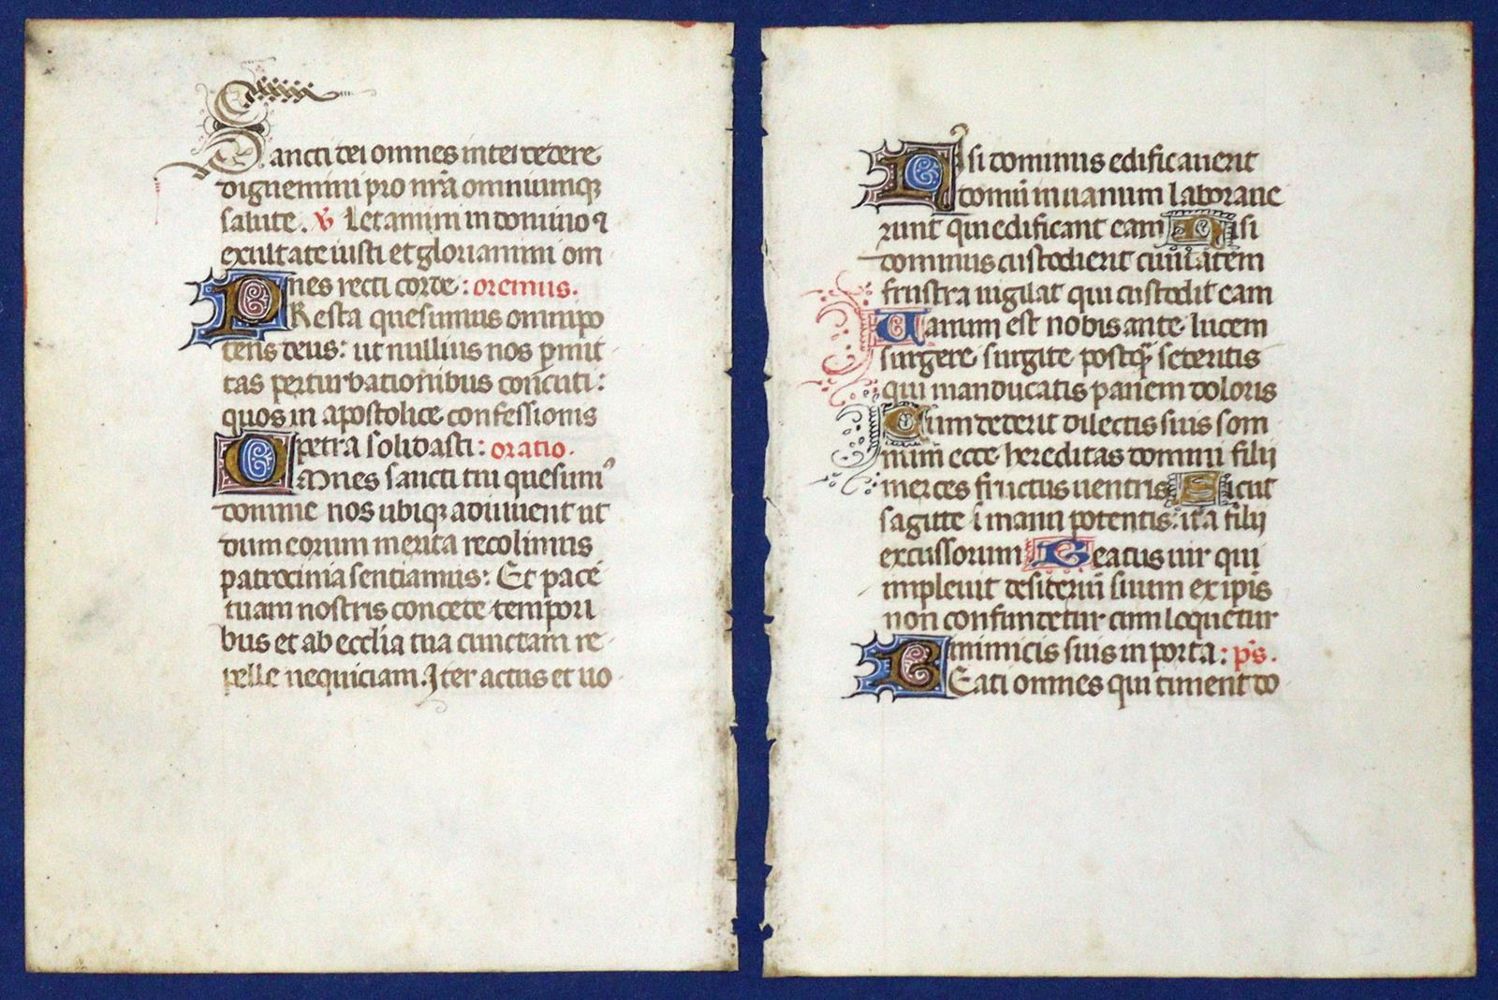 Sancti dei omnes intercedere
dignemini pro nr̄a omniumqꝫ
salute. ℣ Letamini in domino ⁊
exultate iusti et gloriamini om
nes recti corde : oremus.
PResta quesumus omnipo
tens deus: ut nullius nos ꝑmit
tas perturbationibus concuti:
quos in apostolice confessionis
petra solidasti: oratio.
OMnes sancti tui quesumꝰ
domine nos ubiqꝫ adiuuent ut
dum eorum merita recolimus
patrocinia sentiamus: Et pacē
tuam nostris concede tempori
bus et ab ecclīa tua cunctam re
pelle nequiciam. Iter actus et uo
Nisi dominus edificauerit
domū in uanum laboraue
runt qui edificant eam Nisi
dominus custodierit ciuitatem
frustra uigilat qui custodit eam
Uanum est nobis ante lucem
surgere surgite postqꝫ sederitis
qui manducatis panem doloris
Cum dederit dilectis suis som
num ecce hereditas domini filij
merces fructus uentris Sicut
sagitte ī manu potentis: ita filij
excussorum Beatus uir qui
impleuit desideriū suum ex ipīs
non confundetur cum loquetur
inimicis suis in porta: ps̄.
BEati omnes qui timent do